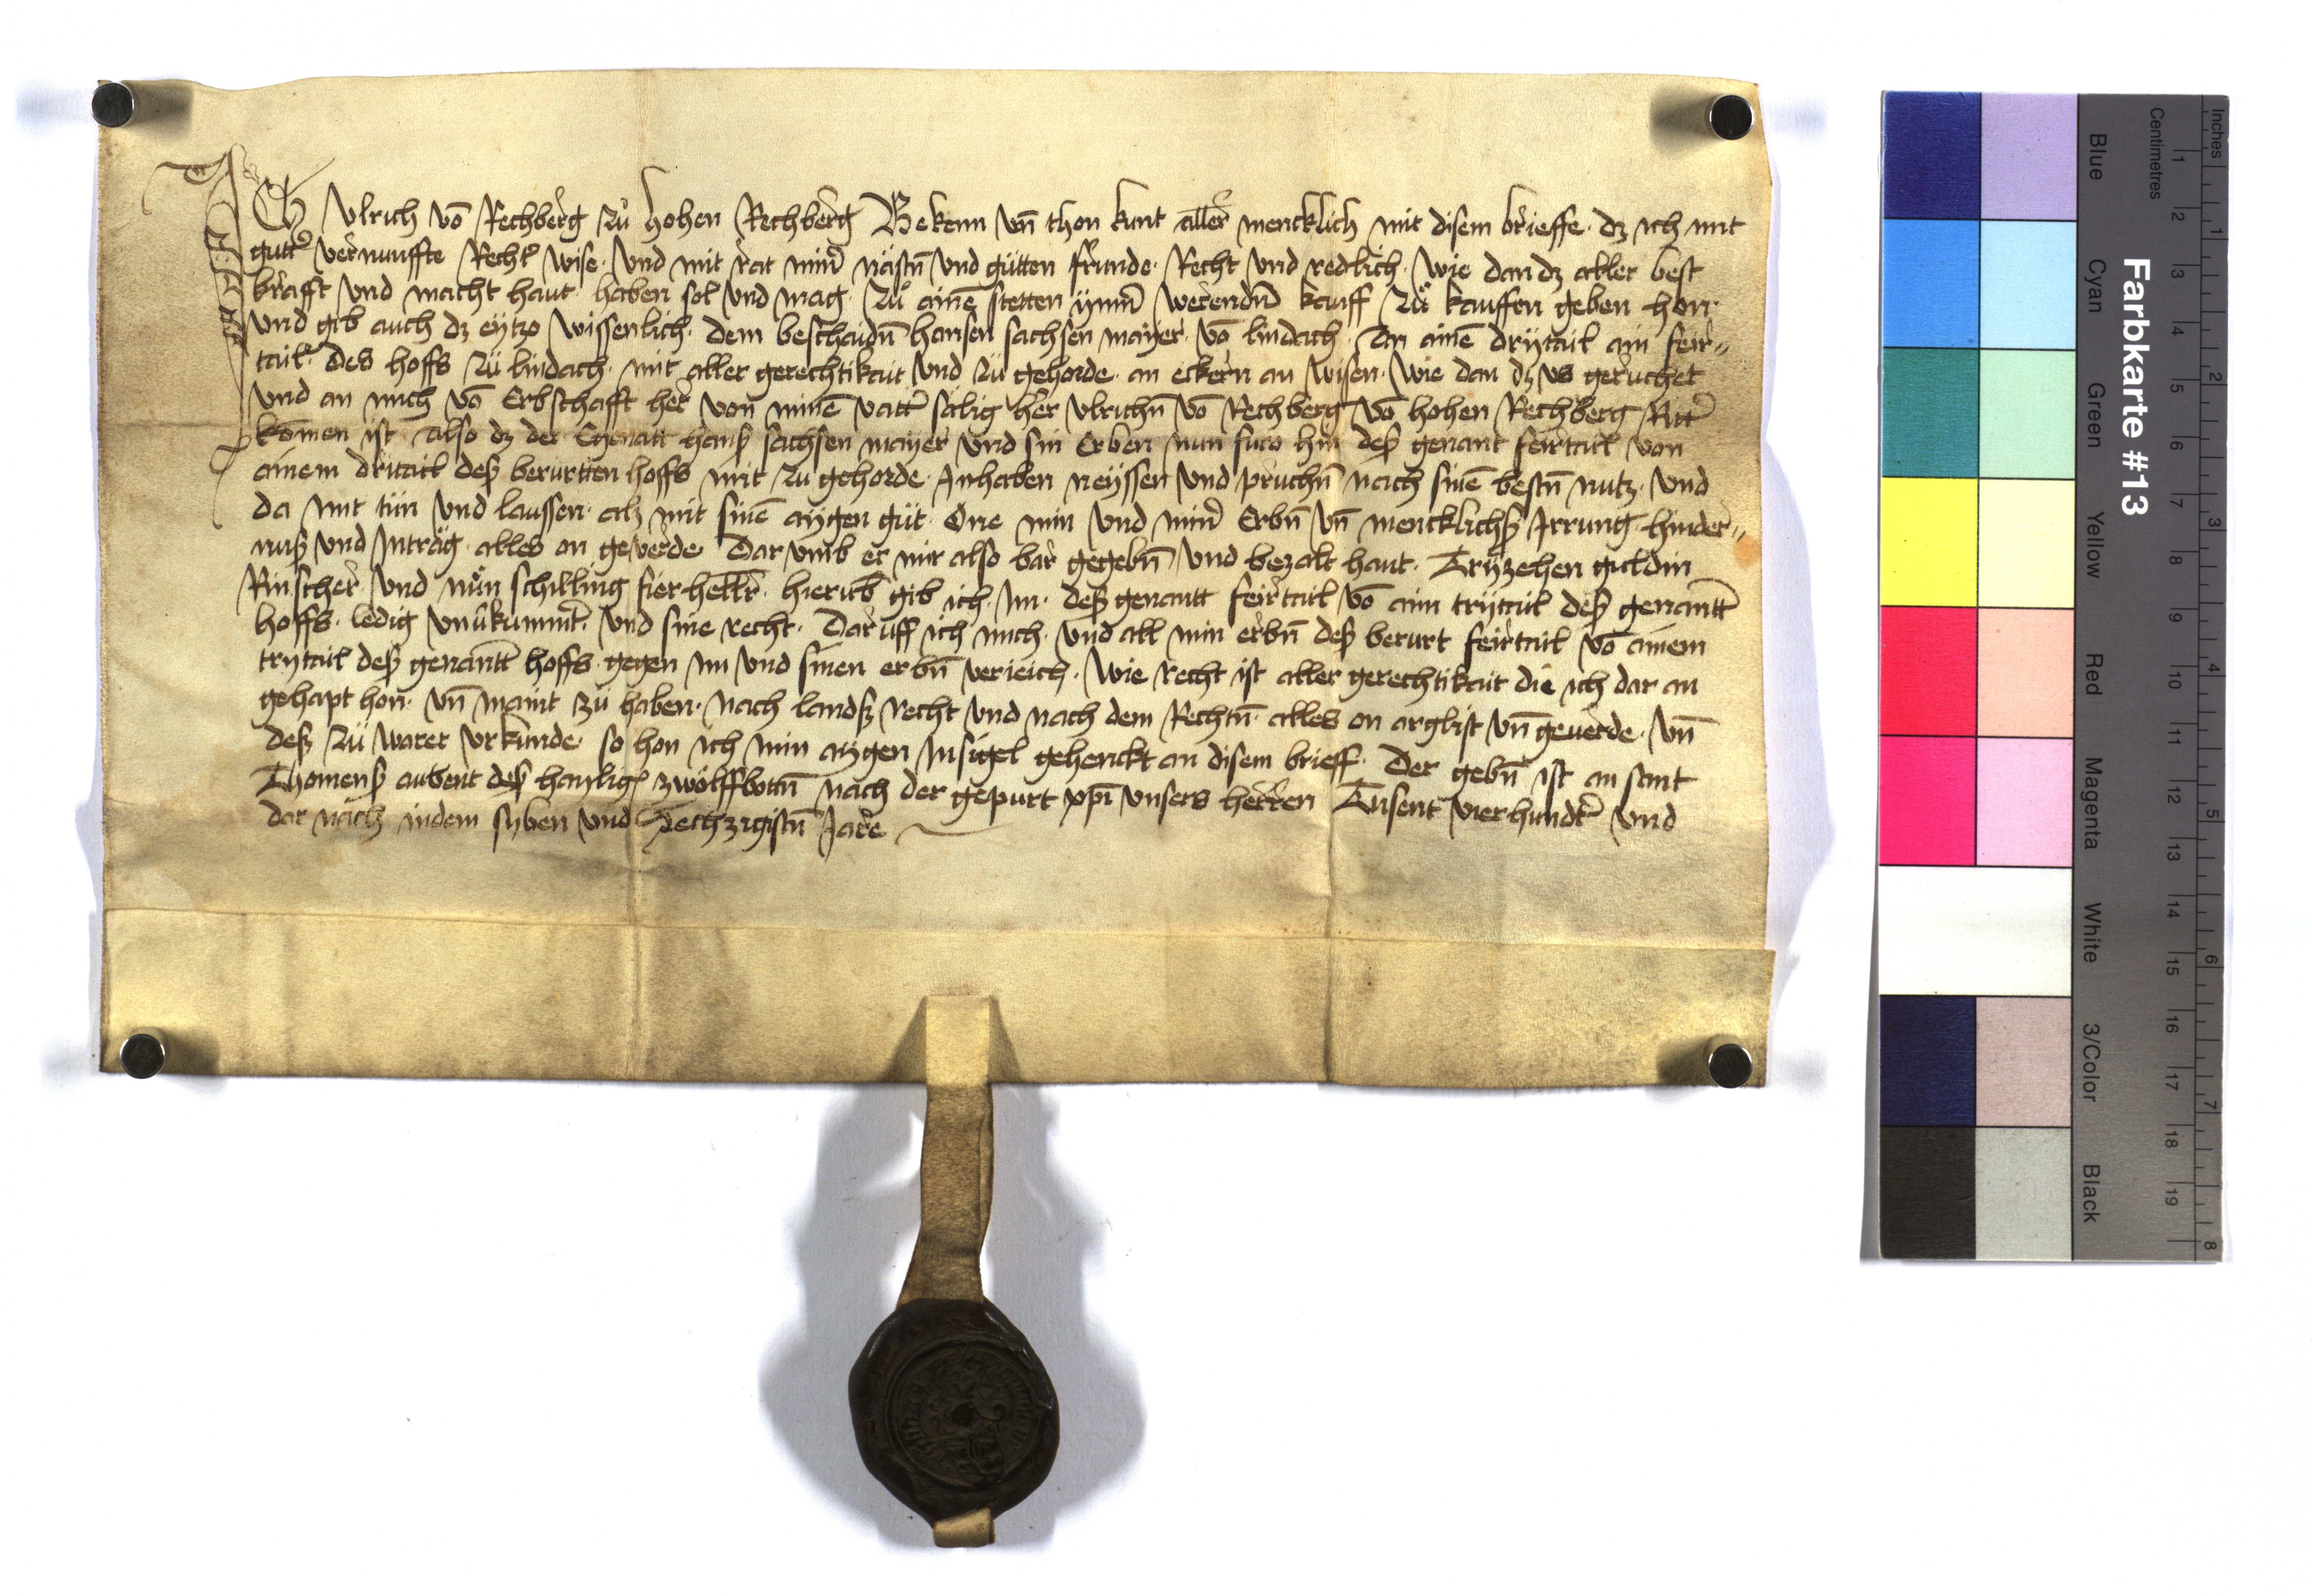 Ich Vlrich vō Rechberg zů hohen Rechberg Bekenn vn̄ thon kunt aller mencklich mit disem brieffe · dz ich mit
gutter vernunffte Rechter wise · vnd mit rat miner nästn̄ vnd gůtten frunde · Recht vnd redlich · wie dan dz aller best
krafft vnd macht haut · haben sol vnd mag · Zů ainē stetten ymmer werendn̄ kauff zů kauffen geben hon ·
vnd gib auch dz eytzo wissenlich · dem beschaidn̄ hansen sachsen mayer · vō lindach · An ainē drytail ain feir„
tail · des hoffs zů lindach · mit aller gerechtikait vnd zů gehorde · an eckern an wisen · wie dan dz vs geruchet
vnd an mich vō Erbschafft her von minē vatter sälig her vlrichn̄ vō Rechberg vō hohen Rechberg Ritter
komen ist also dz der Egenātt hanß sachsen mayer vnd sin Erben nun furo hin deß genant feirtail von
ainem dritail deß berurtten hoffs mit zu gehorde · Inhaben neyssen vnd pruchn̄ nach sinē bestn̄ nutz · vnd
da mit tun vnd laussen · alz mit sinē aygen gůt · One min vnd miner Erbn̄ vn̄ mencklichß Irrung · hinder„
nuß vnd Inträg · alles on geverde Dar vmb er mir also bar gegebn̄ vnd bezalt haut · Tryzehen guldin
Rinscher · vnd nůn schilling fier heller · hierub gib ich · Im · deß genantt feirtail vō aim trytail deß genantt
hoffs · ledig vnuerkummert · vnd sine recht · Dar vff ich mich · vnd all min erbn̄ deß berurt feirtail vō ainem
trytail deß genantt hoffs · gegen im vnd sinen erbn̄ verieich · wie recht ist aller gerechtikait die ich dar an
gehapt hon · vn̄ maint zů haben · nach landß recht vnd nach dem Rechtn̄ · alles on arglist vn̄ geuerde · vn̄
deß zů warer vrkunde · so hon ich min aygen Insigel gehenckt an disem brieff · Der gebn̄ ist an sant
Thomenß aubent deß hayligen zwölffbottn̄ nach der gepurt xpī vnsers herren Tusent vierhundert vnd
dar näch indem syben vnd Sechzigistn̄ Jare
Farbkarte #13
Blue Cyan Green Yellow Red Magenta White 3/Color Black
Centimetres 1 2 3 4 5 6 7 8 9 10 11 12 13 14 15 16 17 18 19
Inches 1 2 3 4 5 6 7 8